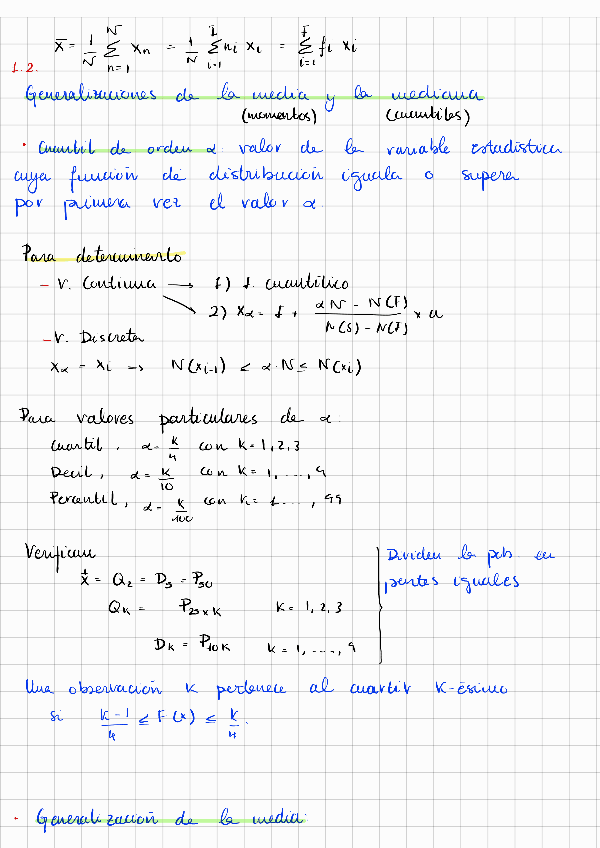 x̄ = 1/N Σ_{n=1}^{N} x_n = 1/N Σ_{i=1}^{I} n_i x_i = Σ_{i=1}^{I} f_i x_i
1.2.
Generalizaciones de la media y la mediana
(momentos) (cuantiles)
· Cuantil de orden α valor de la variable estadística
cuya función de distribución iguala o supera
por primera vez el valor α.
Para determinarlo
- V. Continua → 1) f. cuantílico
→ 2) x_α = I + (αN - N(I))/(N(S) - N(I)) × a
- V. Discreta
x_α = x_i → N(x_{i-1}) < α·N ≤ N(x_i)
Para valores particulares de α.
Cuartil, α = k/4 con k = 1, 2, 3
Decil, α = k/10 con k = 1, ..., 9
Percentil, α = k/100 con k = 1 ..., 99
Verifican
ẋ = Q_2 = D_5 = P_50
Q_k = P_{25×k} k = 1, 2, 3
D_k = P_{10k} k = 1, ..., 9
Dividen la pob. en
partes iguales
Una observación x pertenece al cuartil k-ésimo
si (k-1)/4 ≤ F(x) ≤ k/4.
· Generalización de la media: